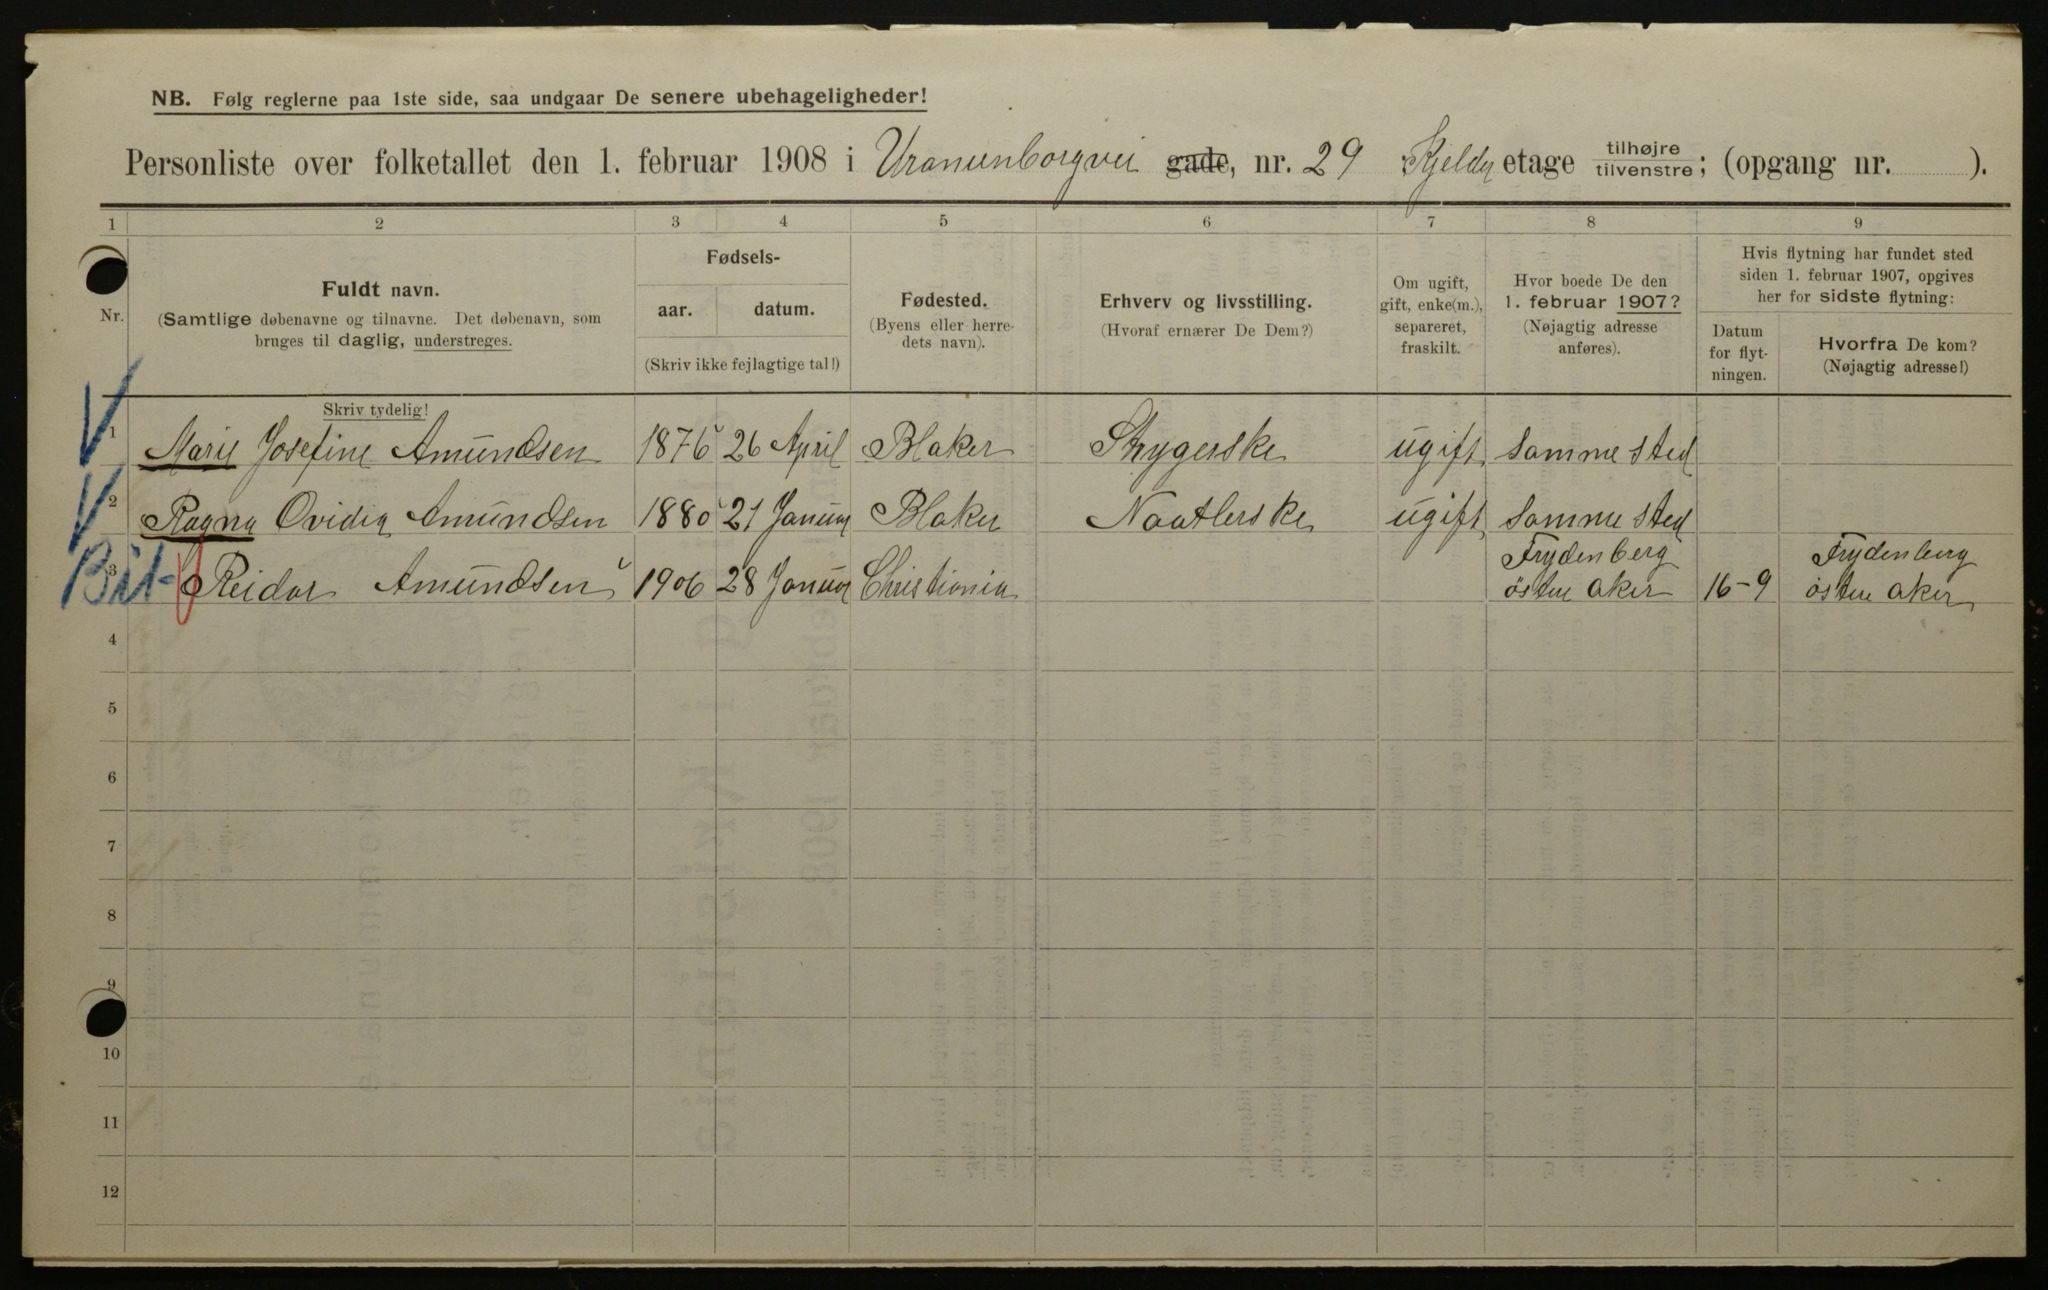 NB. Følg reglerne paa 1ste side, saa undgaar De senere ubehageligheder!
Personliste over folketallet den 1. februar 1908 i Uranienborgvei gade, nr. 29 Kjelder etage tilhøjre tilvenstre; (opgang nr. ).
1 2 3 4 5 6 7 8 9
Nr.
Fuldt navn.
(Samtlige døbenavne og tilnavne. Det døbenavn, som
bruges til daglig, understreges.
Skriv tydelig!
Fødsels-
aar. datum.
(Skriv ikke fejlagtige tal!)
Fødested.
(Byens eller herre-
dets navn).
Erhverv og livsstilling.
(Hvoraf ernærer De Dem?)
Om ugift,
gift, enke(m.),
separeret,
fraskilt.
Hvor boede De den
1. februar 1907?
(Nøjagtig adresse
anføres).
Hvis flytning har fundet sted
siden 1. februar 1907, opgives
her for sidste flytning:
Datum
for flyt-
ningen.
Hvorfra De kom?
(Nøjagtig adresse!)
1 Marie Josefine Amundsen 1876 26 April Blaker Strygerske ugift samme sted
2 Ragna Ovidia Amundsen 1880 21 Januar Blaker Naatlerske ugift samme sted
3 Reidar Amundsen 1906 28 Januar Christiania Frydenberg östre Aker 16-9 Frydenberg östre Aker
4
5
6
7
8
9
10
11
12